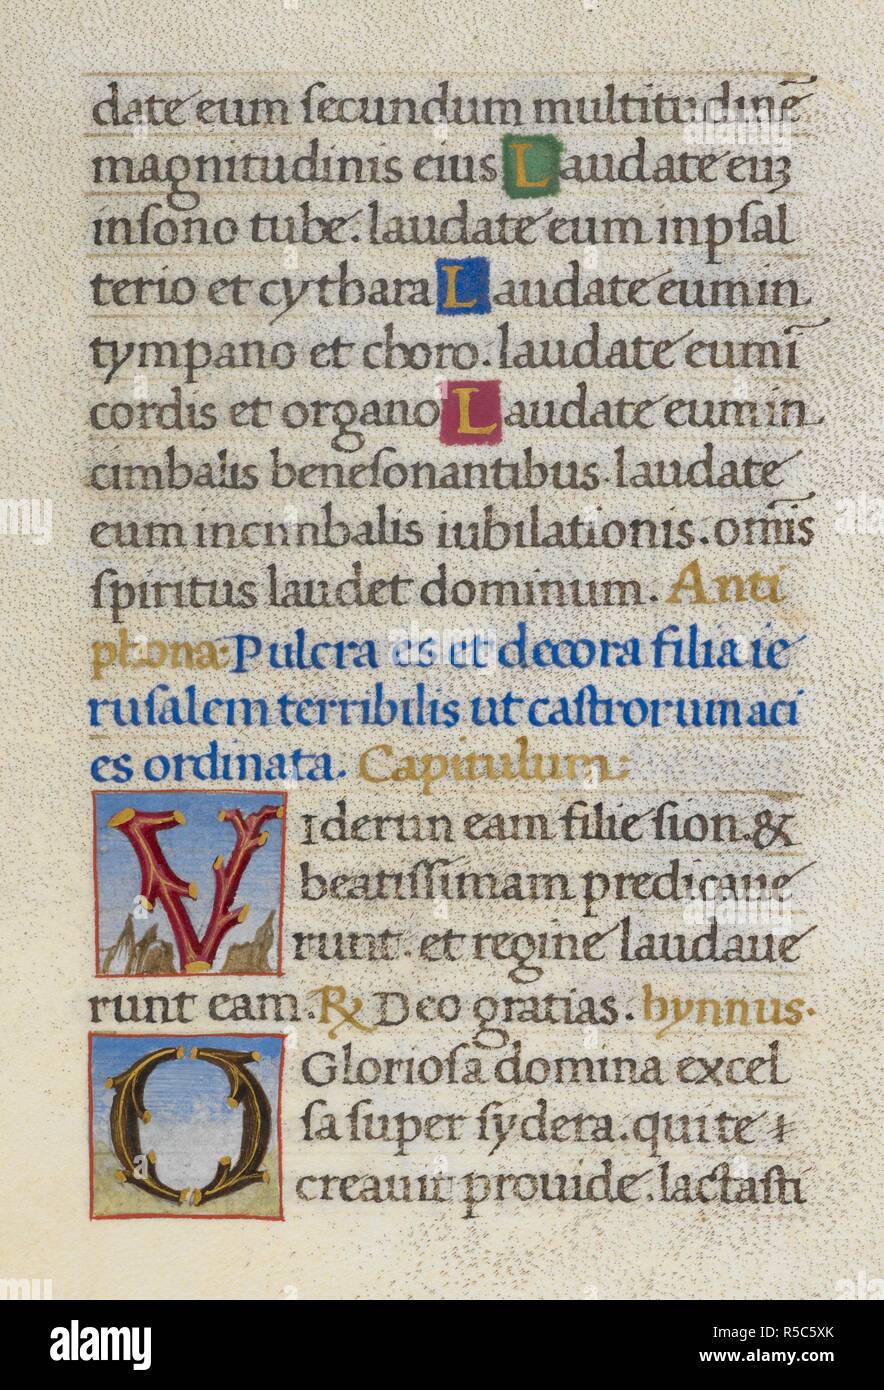 date eum secundum multitudinē
magnitudinis eius Laudate euꝫ
insono tube. laudate eum inpsal
terio et cythara Laudate eum in
tympano et choro. laudate eum ī
cordis et organo Laudate eum in
cimbalis benesonantibus. laudate
eum in cimbalis iubilationis. omīs
spiritus laudet dominum. Anti
phona: Pulcra es et decora filia ie
rusalem terribilis ut castrorum aci
es ordinata. Capitulum:
Viderun eam filie sion. &
beatissimam predicaue
runt. et regine laudaue
runt eam. ℞ Deo gratias. hynnus.
O Gloriosa domina excel
sa super sydera. qui te
creauit prouide. lactasti
alamy
Image ID: R5C5XK
www.alamy.com